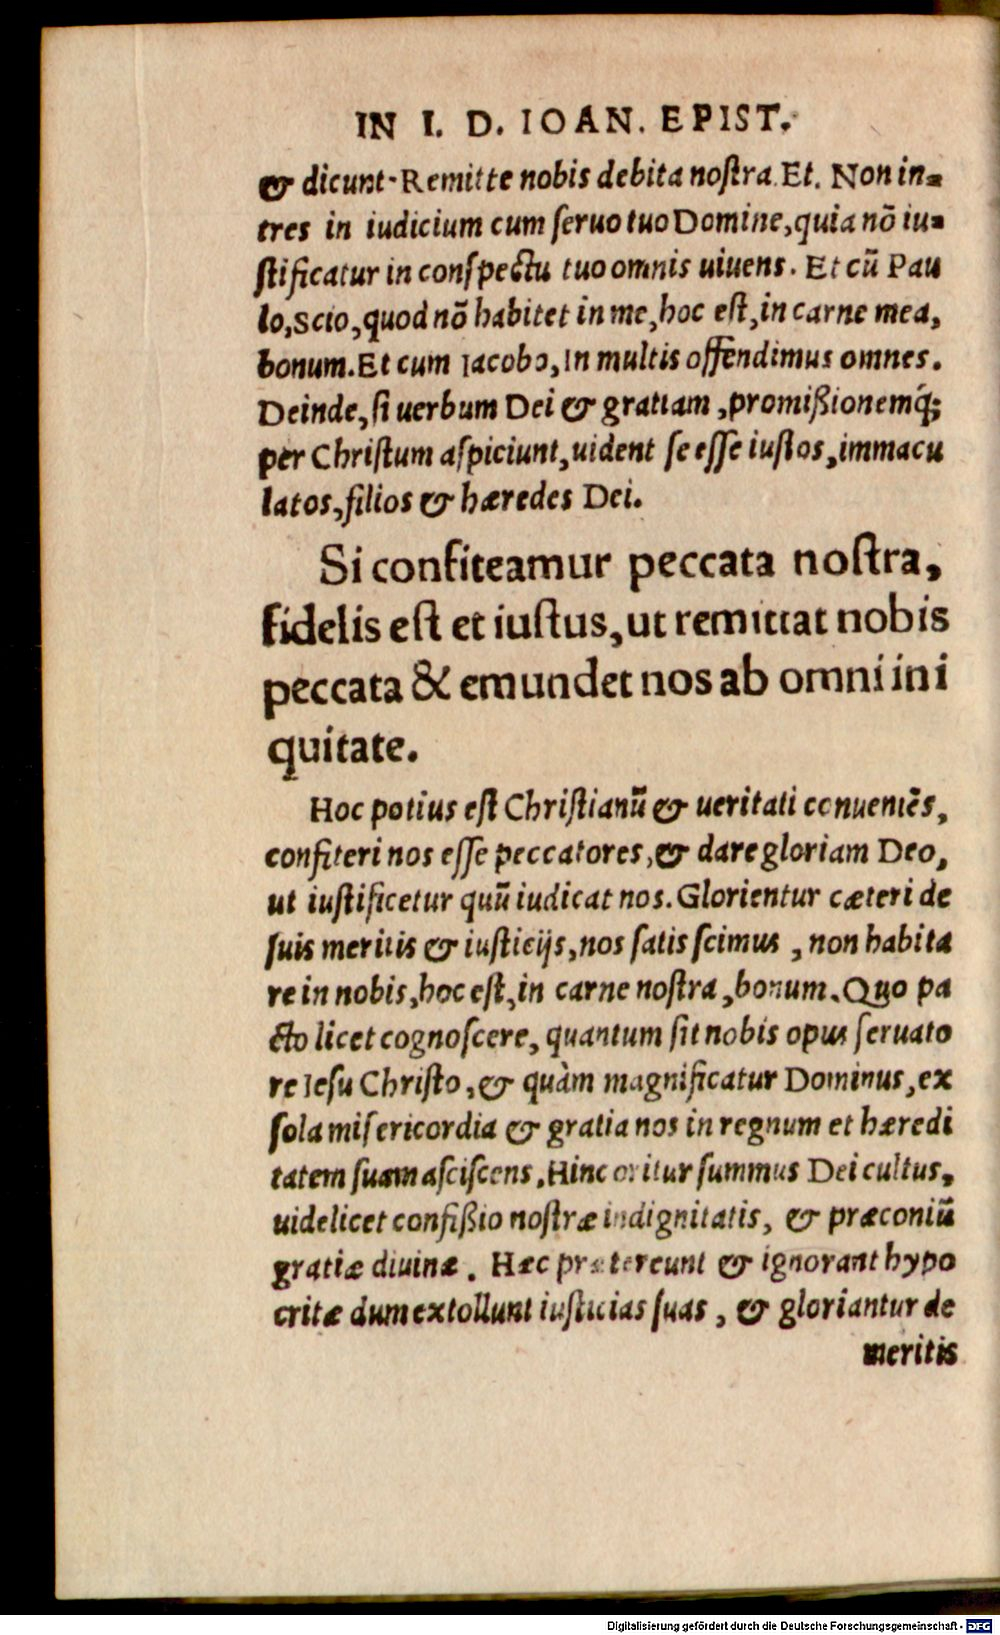 IN I. D. IOAN. EPIST.
& dicunt. Remitte nobis debita noſtra. Et. Non in-
tres in iudicium cum ſeruo tuo Domine, quia nō iu-
ſtificatur in conſpectu tuo omnis uiuens. Et cū Pau
lo, Scio, quod nō habitet in me, hoc eſt, in carne mea,
bonum. Et cum Iacobo, In multis offendimus omnes.
Deinde, ſi uerbum Dei & gratiam, promißionemq́;
per Chriſtum aſpiciunt, uident ſe eſſe iuſtos, immacu
latos, filios & hæredes Dei.
Si confiteamur peccata noſtra,
fidelis eſt et iuſtus, ut remittat nobis
peccata & emundet nos ab omni ini
quitate.
Hoc potius eſt Chriſtianū & ueritati conueniēs,
confiteri nos eſſe peccatores, & dare gloriam Deo,
ut iuſtificetur quū iudicat nos. Glorientur cæteri de
ſuis meritis & iuſticijs, nos ſatis ſcimus, non habita
re in nobis, hoc eſt, in carne noſtra, bonum. Quo pa
cto licet cognoſcere, quantum ſit nobis opus ſeruato
re Ieſu Chriſto, & quàm magnificatur Dominus, ex
ſola miſericordia & gratia nos in regnum et hæredi
tatem ſuam aſciſcens. Hinc oritur ſummus Dei cultus,
uidelicet confißio noſtræ indignitatis, & præconiū
gratiæ diuinæ. Hæc prætereunt & ignorant hypo
critæ dum extollunt iuſticias ſuas, & gloriantur de
meritis
Digitalisierung gefördert durch die Deutsche Forschungsgemeinschaft - DFG